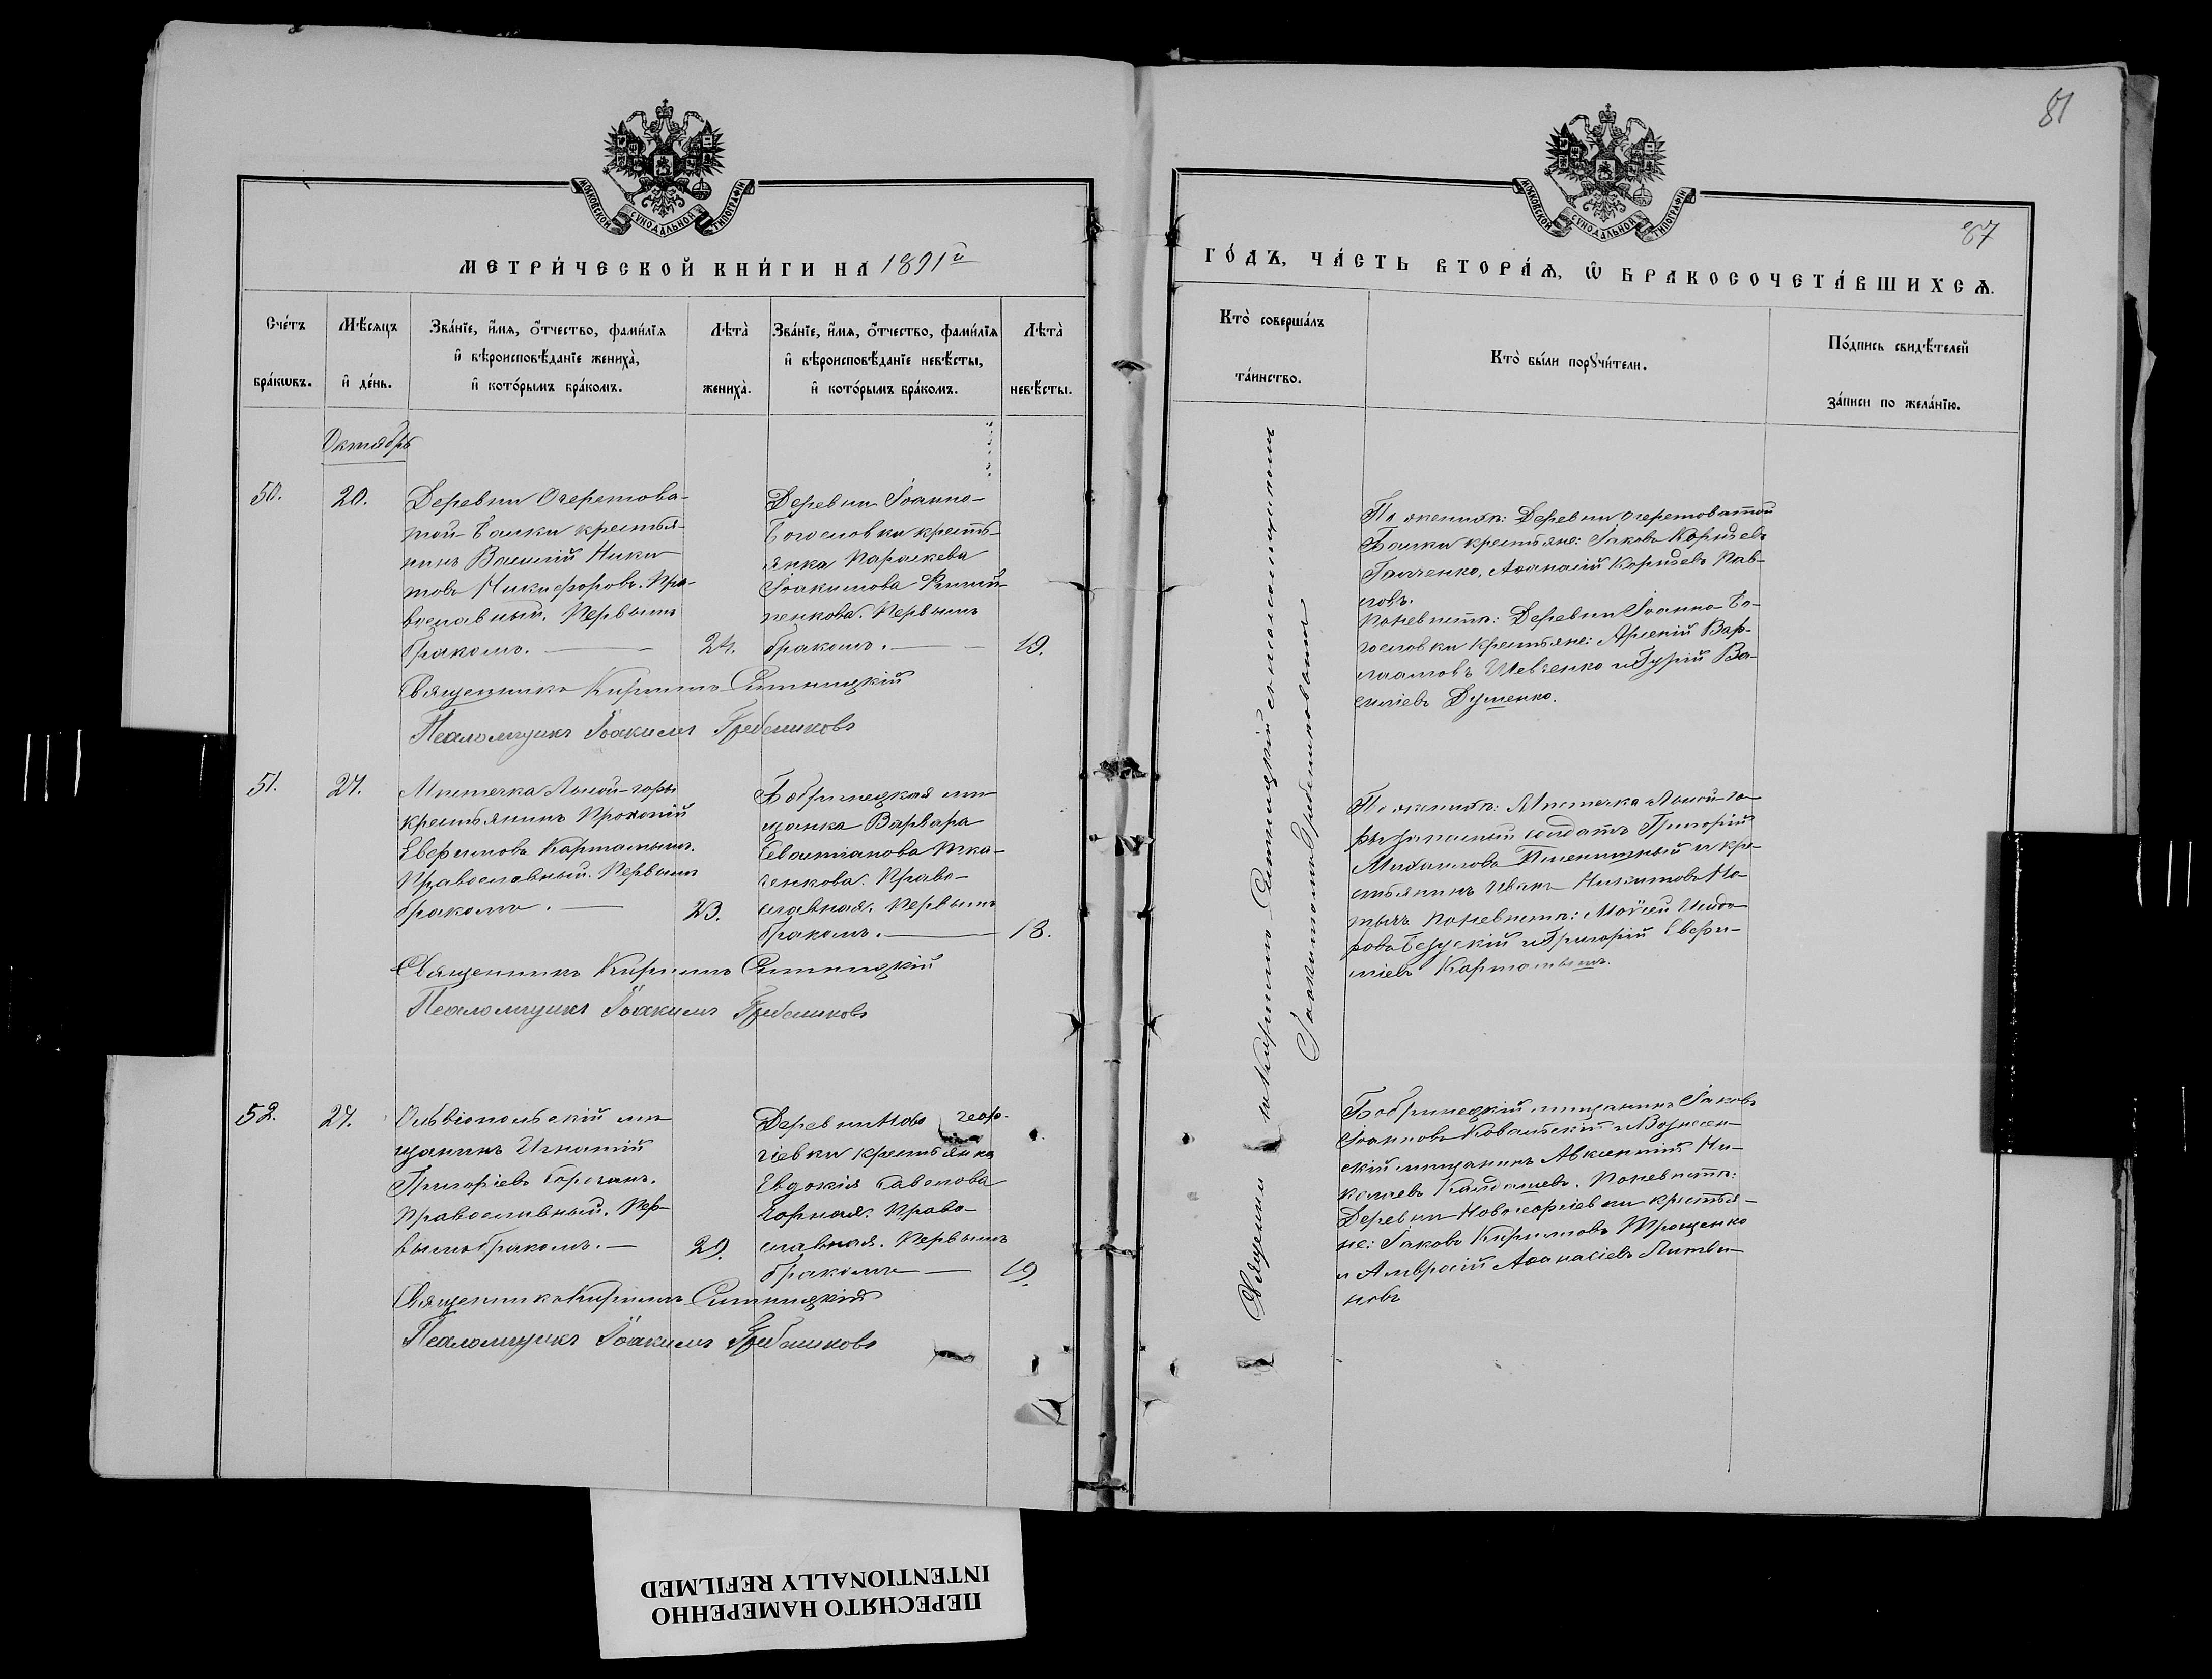 81
МОСКОВСКОЙ СѴНОДАЛЬНОЙ ТИПОГРАФІИ
МЕТРИ́ЧЕСКОЙ КНИ́ГИ НА 1891й
Сче́тъ бра́кѡвъ.
Мѣ́сяцъ и҆ де́нь.
Зва́нїе, и҆́мя, ѻ҆́тчество, фами́лїя
и҆ вѣроисповѣ́данїе жениха̀,
и҆ кото́рымъ бра́комъ.
Лѣта̀ жениха̀.
Зва́нїе, и҆́мя, ѻ҆́тчество, фами́лїя
и҆ вѣроисповѣ́данїе невѣ́сты,
и҆ кото́рымъ бра́комъ.
Лѣта̀ невѣ́сты.
Октябрь
50.
20.
Деревни Очеретова-
той-Балки крестья-
нинъ Василій Ники
товъ Никифоровъ. Пра-
вославный. Первымъ
бракомъ.
24.
Деревни Іоанно-
Богословки кресть-
янка Параскева
Іоакимова
Первымъ
бракомъ.
19.
Священникъ Кириллъ Ситницкій
Псаломщикъ Іоакимъ Гребениковъ
51.
27.
Мѣстечка Лысой-горы
крестьянинъ Прокопій
Евфимовъ
Православный. Первымъ
бракомъ.
23.
Бобринецкая мѣ
щанка Варвара
Севастіанова Тка-
ченкова. Право-
славная. Первымъ
бракомъ.
18.
Священникъ Кириллъ Ситницкій
Псаломщикъ Іоакимъ Гребениковъ
52.
27.
Ольвіопольскій мѣ
щанинъ Игнатій
Григоріевъ
Православный. Пер-
вымъ бракомъ.
29.
Деревни Ново геор-
гіевки крестьянка
Евдокія Савелова
Чорная. Право-
славная. Первымъ
бракомъ
19.
Священникъ Кириллъ Ситницкій
Псаломщикъ Іоакимъ Гребениковъ
МОСКОВСКОЙ СѴНОДАЛЬНОЙ ТИПОГРАФІИ
87
ГО́ДЪ, ЧА́СТЬ ВТОРА́Ѧ, Ѽ БРАКОСОЧЕТА́ВШИХСѦ.
Кто̀ соверша́лъ
та́инство.
Кто̀ бы́ли порꙋчи́тели.
По́дпись свидѣ́телей
за́писи по жела́нїю.
Священникъ Кириллъ Ситницкій съ псаломщикомъ
Іоакимомъ Гребениковымъ
По женихѣ: Деревни Очеретоватой
Балки крестьяне: Іаковъ Корнѣевъ
Ткаченко, Аѳанасій Корнѣевъ Пав-
ловъ.
По невѣстѣ: Деревни Іоанно-Бо-
гословки крестьяне: Арсеній Вар-
лаамовъ Шевченко и Гурій Ва-
силіевъ Думенко.
По женихѣ: Мѣстечка Лысой-го-
ры запасный солдатъ Григорій
Михаиловъ Пшеничный и кре-
стьянинъ Иванъ Никитовъ
По невѣстѣ: Моисей Исидо-
ровъ и Григорій Евфи-
міевъ
Бобринецкій мѣщанинъ Іаковъ
Іоанновъ Ковальскій и Вознесен-
скій мѣщанинъ Авксентій Ни-
колаевъ По невѣстѣ:
Деревни Новогеоргіевки крестья-
не: Іаковъ Кирилловъ Трощенко
и Амвросій Аѳанасіевъ Литви-
новъ
ПЕРЕСНЯТО НАМЕРЕННО
INTENTIONALLY REFILMED